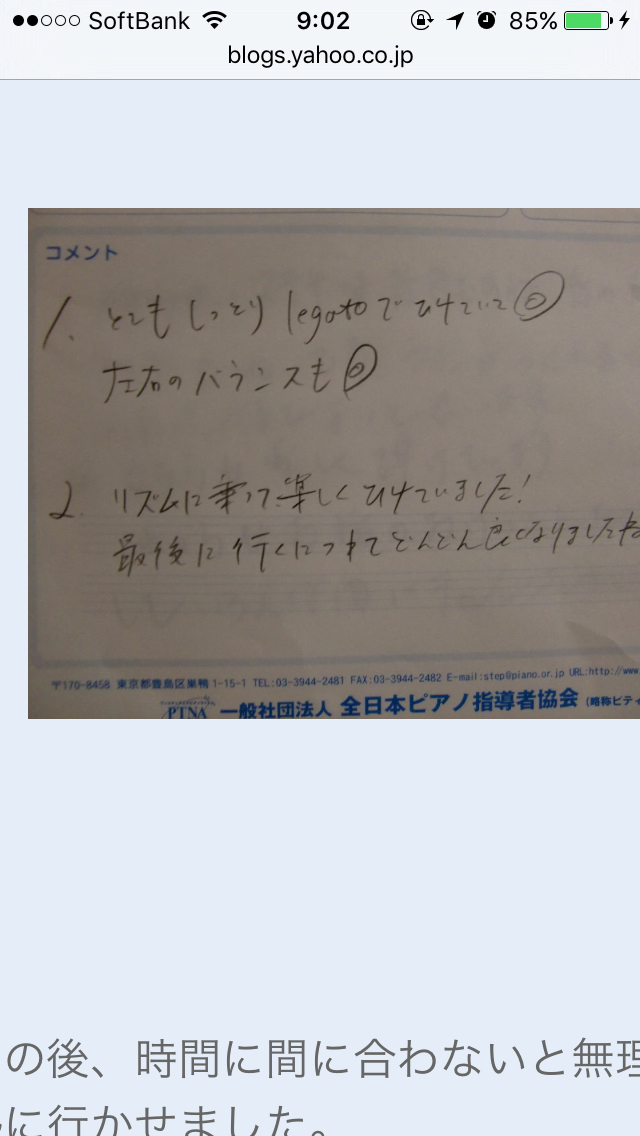 SoftBank 9:02 85%
blogs.yahoo.co.jp
コメント
1. とてもしっとりlegatoでひけていて◎
左右のバランスも◎
2. リズムに乗って楽しくひけていました!
最後に行くにつれてどんどん良くなりました
〒170-8458 東京都豊島区巣鴨1-15-1 TEL:03-3944-2481 FAX:03-3944-2482 E-mail:step@piano.or.jp URL:http://www
PTNA 一般社団法人 全日本ピアノ指導者協会 (略称ピティ
の後、時間に間に合わないと無理
に行かせました。